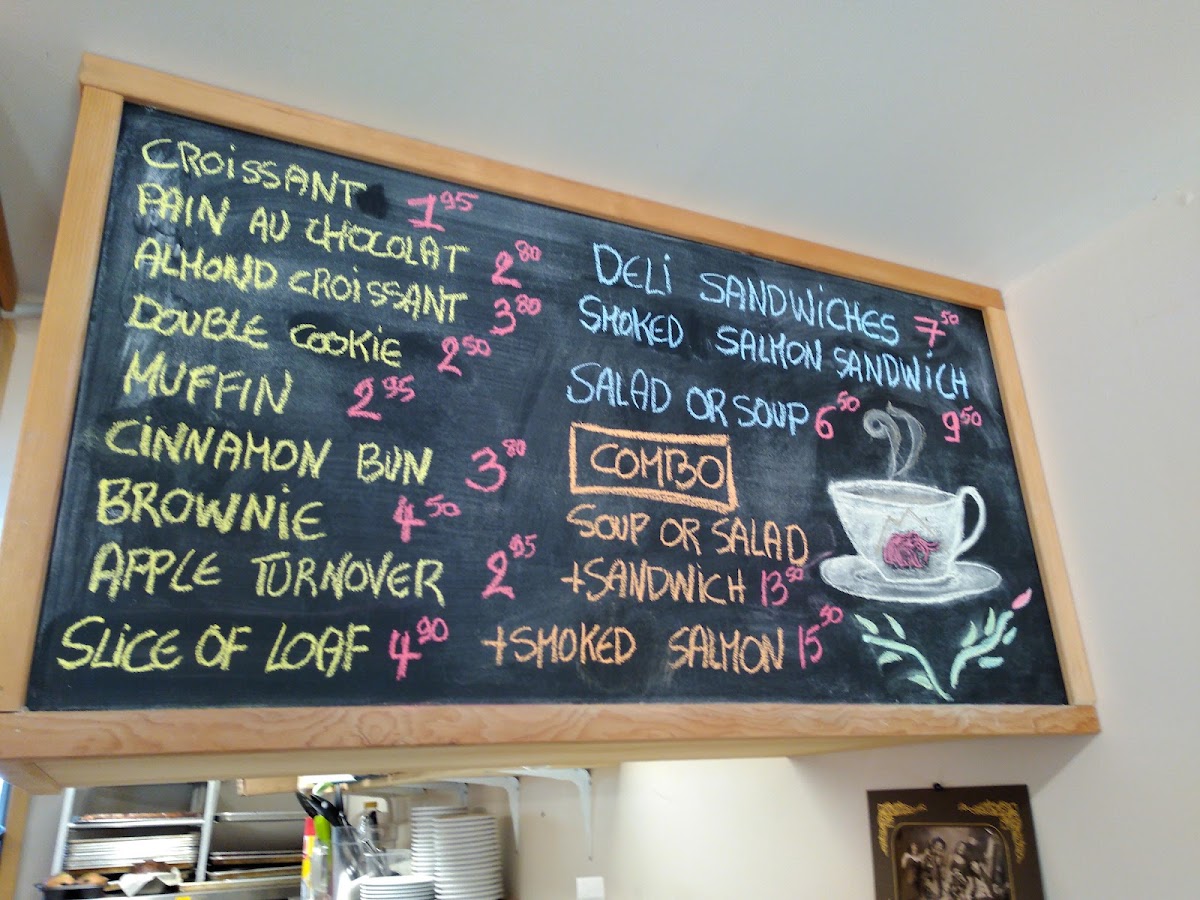 CROISSANT 1.95
PAIN AU CHOCOLAT 2.80
ALMOND CROISSANT 3.80
DOUBLE COOKIE 2.50
MUFFIN 2.95
CINNAMON BUN 3.80
BROWNIE 4.50
APPLE TURNOVER 2.95
SLICE OF LOAF 4.90
DELI SANDWICHES 7.50
SMOKED SALMON SANDWICH
9.50
SALAD OR SOUP 6.50
COMBO
SOUP OR SALAD
+SANDWICH 13.50
+SMOKED SALMON 15.50